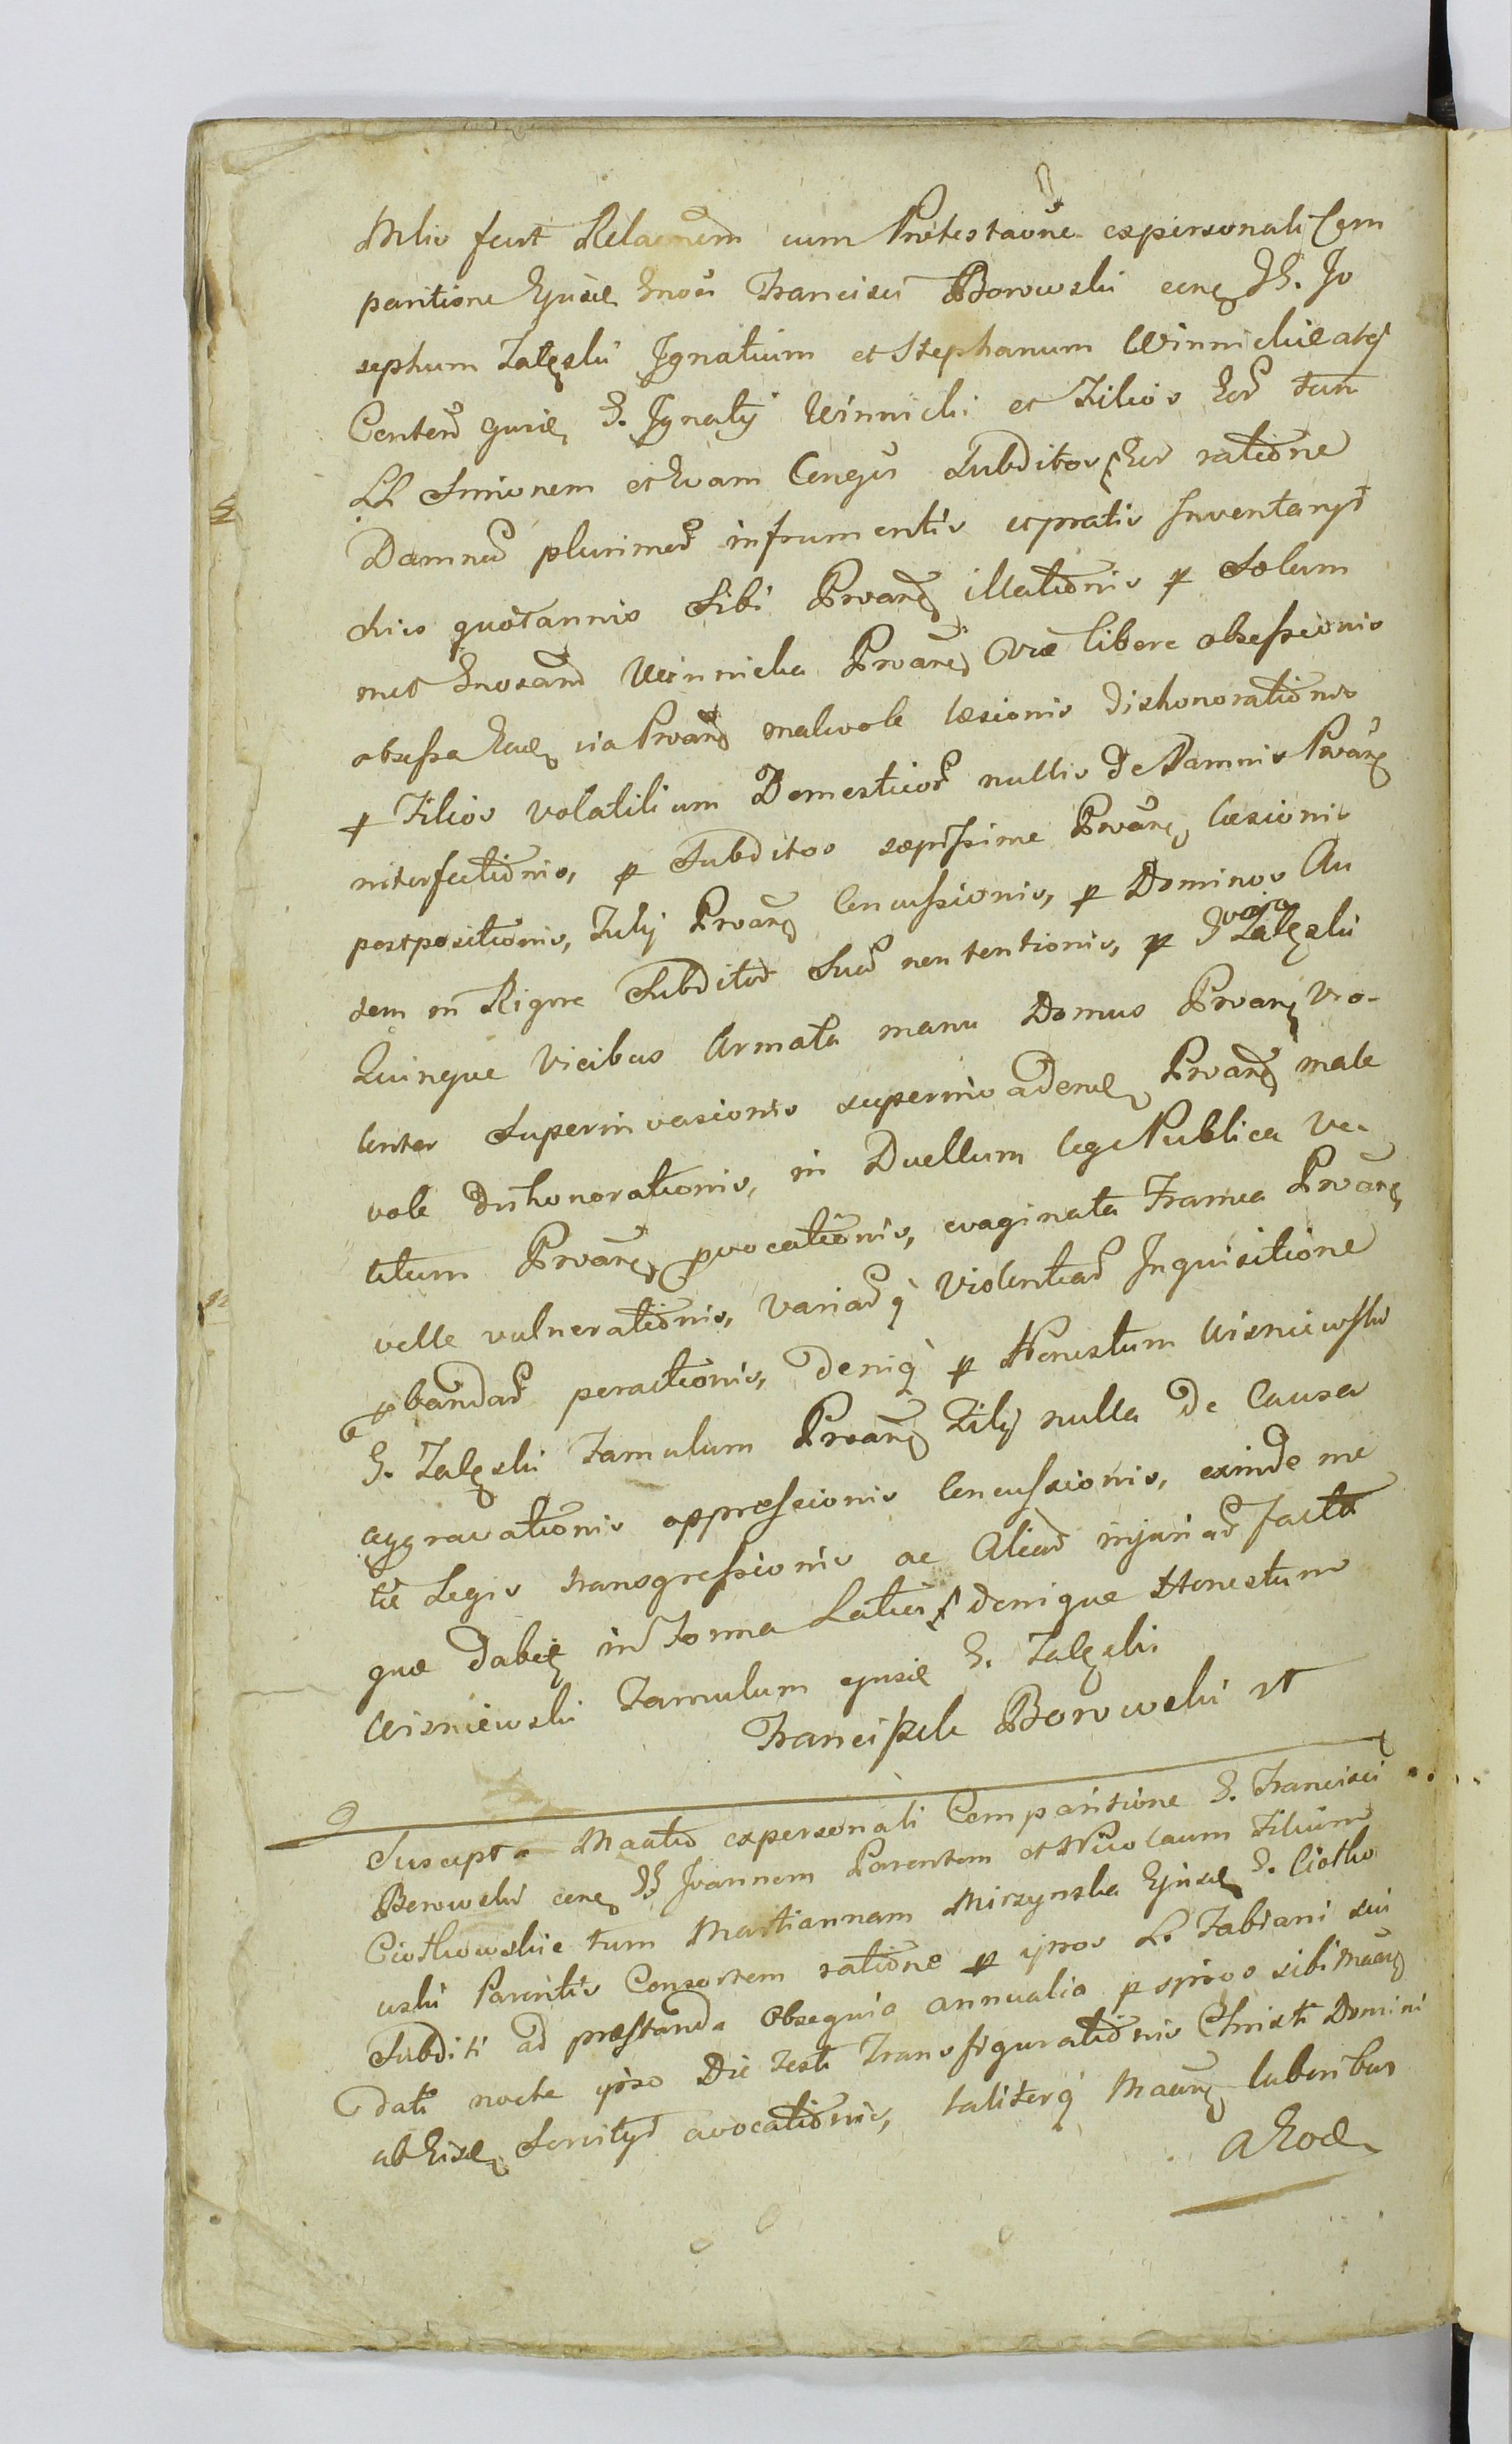 Mlio fecit Relaonem cum Protestaone expersonali Com
paritione Ejusd Gnosi Francisci Borowski cong GG. Jo
sephum Zalęski Ignatium et Stephanum Winnickie atq
Consten ejusd G. Ignatij Winnicki et Filios Eor tum
LL Simonem et Evam Conges Subditos Eor ratione
Damnor plurimor in frumentis et pratis Inventarys
quotannis Sibi Proang illationis p Solum
met Gnosam Winnicka Proang viæ libere obsessionis
obsessa Ead via Proang malevole læsionis dishonorationis
p Filios volatilium Domesticor nullis de Damnis Proang
interfectionis, p Subditos sæpissime Proang læsionis
postpositionis, Filij Proang Concussionis, p Dominos An
dem in Rigore Subditor Suor non tentionis, p G Zalęski
Quinque Vicibus Armata manu Domus Proang vio-
lenter Superinvasionis superinvadend Proang male
vole Dishonorationis, in Duellum lege Publica Ve-
titum Proang provocationis, evaginata Framea Proang
velle vulnerationis, variarq violentiar Inquisitione
pbandar peractionis, Deniq p Honestum Wisniewski
G. Zalęski Famulum Proang Filij nulla De Causa
aggravationis oppressionis Concussionis, exinde me
tu Legis transgressionis ac Aliar injuriar facta
quæ dabit in Forma Latius denique Honestum
Wisniewski Famulum ejusd G. Zalęski
Franciszek Borowski
Suscepta Maatio expersonali Comparitione G. Francisci
Borowski cong GG Joannem Parentem et Nicolaum Filium
Ciotkowskie tum Martiannam Mirzynska Ejusd G. Ciotko
wski Parentis Consortem ratione p ipsos L. Fabiani sui
Subditi ad præstanda Obsequia annualia p ipsos sibi Maang
dati nocte ipso Die Festi Transfigurationis Christi Domini
ab Eisd Servitys avocationis, taliterq Maang laboribus
ab Eod